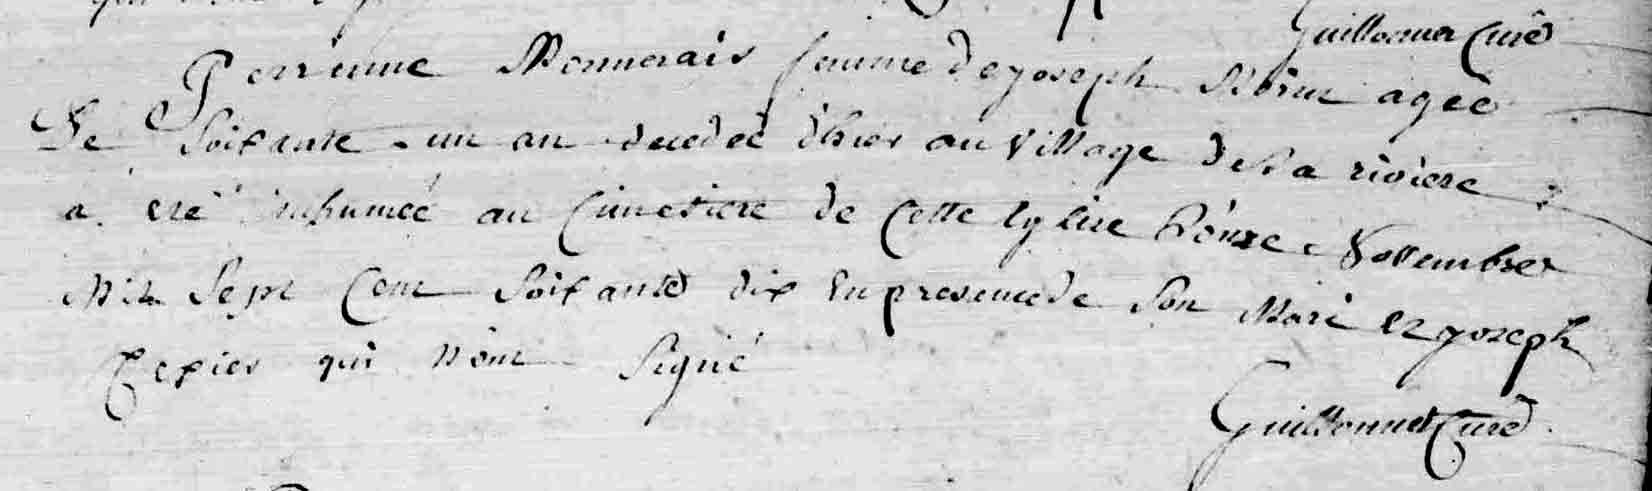 Guillonnet Curé
Perrinne Monnerais femme de joseph Morin agée
De Soixante un an decedeé d'hier au Village de la riviere
a eté inhumeé au Cimetiere de Cette Eglise Onze Novembre
Mil Sept Cent Soixante dix En presence de Son Mari et joseph
Texier qui n'ont Signé
Guillonnet Curé